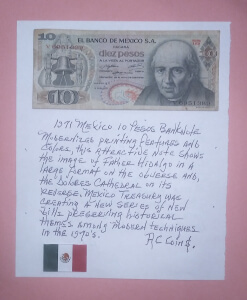 10
EL BANCO DE MEXICO S.A.
PAGARA
diez pesos
10
1971 MEXICO 10 PESOS BANKNOTE
MODERNIZED PRINTING FEATURES AND
COLORS, THIS ATTRACTIVE NOTE SHOWS
THE IMAGE OF FATHER HIDALGO IN A
LARGE FORMAT ON THE OBVERSE AND,
THE DOLORES CATHEDRAL ON ITS
REVERSE. MEXICO TREASURY WAS
CREATING A NEW SERIES OF NEW
BILLS PRESERVING HISTORICAL
THEMES AMONG MODERN TECHNIQUES
IN THE 1970'S.
RC COINS.